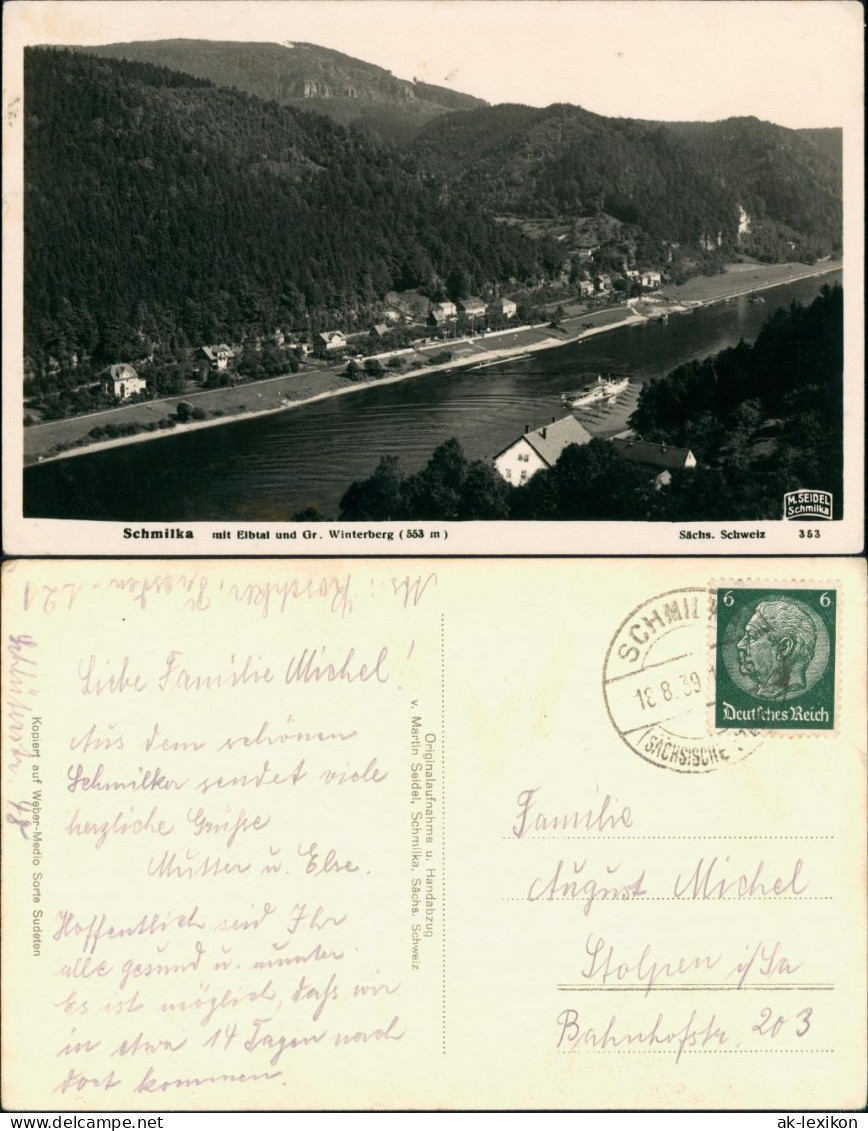 M. SEIDEL
Schmilka
Schmilka mit Elbtal und Gr. Winterberg (553 m) Sächs. Schweiz 353
Abs.: Roschker, Dresden - A21
Schlüterstr. 48
Kopiert auf Weber-Medio Sorte Sudeten
Liebe Familie Michel!
Aus dem schönen
Schmilka sendet viele
herzliche Grüße
Mutter u. Else.
Hoffentlich seid Ihr
alle gesund u. munter.
Es ist möglich, daß wir
in etwa 14 Tagen nach
dort kommen.
Originalaufnahme u. Handabzug
v. Martin Seidel, Schmilka, Sächs. Schweiz
SCHMILKA
18.8.39
(SÄCHSISCHE
6 6
Deutsches Reich
Familie
August Michel
Stolpen i/Sa
Bahnhofstr. 203
ak-lexikon